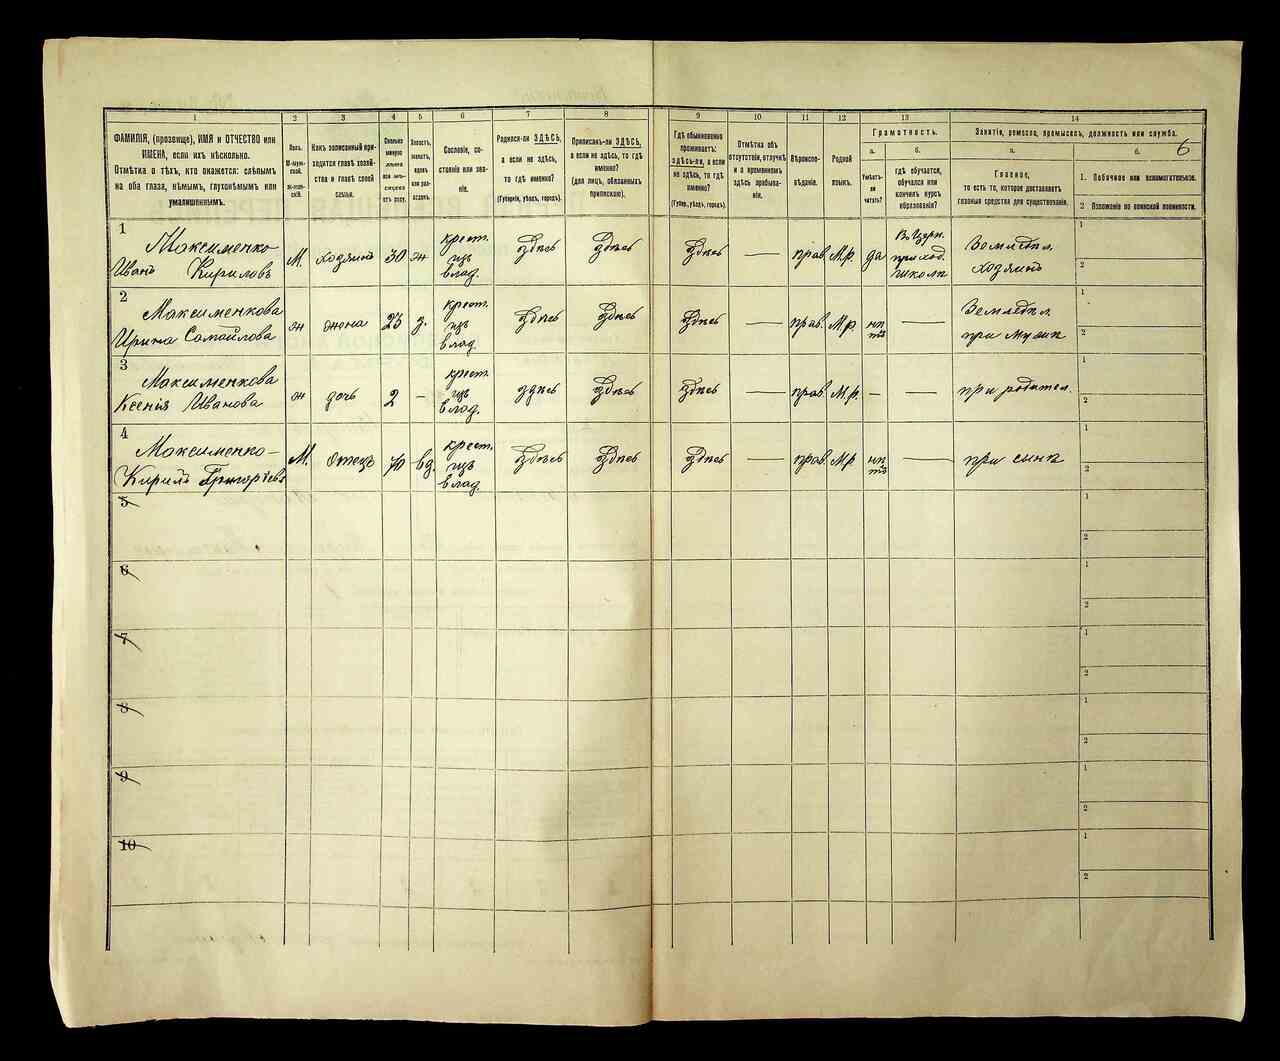 1
2
3
4
5
6
7
8
9
10
11
12
13
14
ФАМИЛІЯ, (прозвище), ИМЯ и ОТЧЕСТВО или
ИМЕНА, если ихъ нѣсколько.
Отмѣтка о тѣхъ, кто окажется: слѣпымъ
на оба глаза, нѣмымъ, глухонѣмымъ или
умалишеннымъ.
Полъ.
М-муж-
ской.
Ж-жен-
скій.
Какъ записанный при-
ходится главѣ хозяй-
ства и главѣ своей
семьи.
Сколько
минуло
лѣтъ
Холостъ,
женатъ,
вдовъ
или раз-
веденъ.
Сословіе, со-
стояніе или зва-
ніе.
Родился-ли ЗДѢСЬ,
а если не здѣсь,
то гдѣ именно?
(Губернія, уѣздъ, городъ).
Приписанъ-ли ЗДѢСЬ,
а если не здѣсь, то гдѣ
именно?
(для лицъ, обязанныхъ
припискою).
Гдѣ обыкновенно
проживаетъ:
здѣсь-ли, а если
не здѣсь, то гдѣ
именно?
(Губер., уѣздъ, городъ).
Отмѣтка объ
отсутствіи, отлучкѣ
и о временномъ
здѣсь пребыва-
ніи.
Вѣроиспо-
вѣданіе.
Родной
языкъ.
Грамотность.
а.
Умѣетъ-
ли
читать?
б.
гдѣ обучается,
обучался или
кончилъ курсъ
образованія?
Занятіе, ремесло, промыселъ, должность или служба.
6
а.
Главное,
то есть то, которое доставляетъ
главныя средства для существованія.
б.
1. Побочное или вспомогательное.
2 Положеніе по воинской повинности.
1
Максименко
Иванъ Кириловъ
М.
хозяинъ
30
ж
крест.
изъ
влад.
здѣсь
здѣсь
здѣсь
—
прав.
М.р.
да
В церк.
приход.
школѣ
Земледѣл.
хозяинъ
1
2
2
Максименкова
Ирина Самойлова
ж
жена
23
з.
крест.
изъ
влад.
здѣсь
здѣсь
здѣсь
—
прав.
М.р.
нѣ
тъ
—
Земледѣл.
при мужѣ
1
2
3
Максименкова
Ксенія Иванова
ж
дочь
2
–
крест.
изъ
влад.
здѣсь
здѣсь
здѣсь
—
прав.
М.р.
–
—
при родител.
1
2
4
Максименко-
Кирилъ Григорьевъ
М.
отецъ
70
вд.
крест.
изъ
влад.
здѣсь
здѣсь
здѣсь
—
прав.
М.р.
нѣ
тъ
—
при сынѣ
1
2
5
1
2
6
1
2
7
1
2
8
1
2
9
1
2
10
1
2